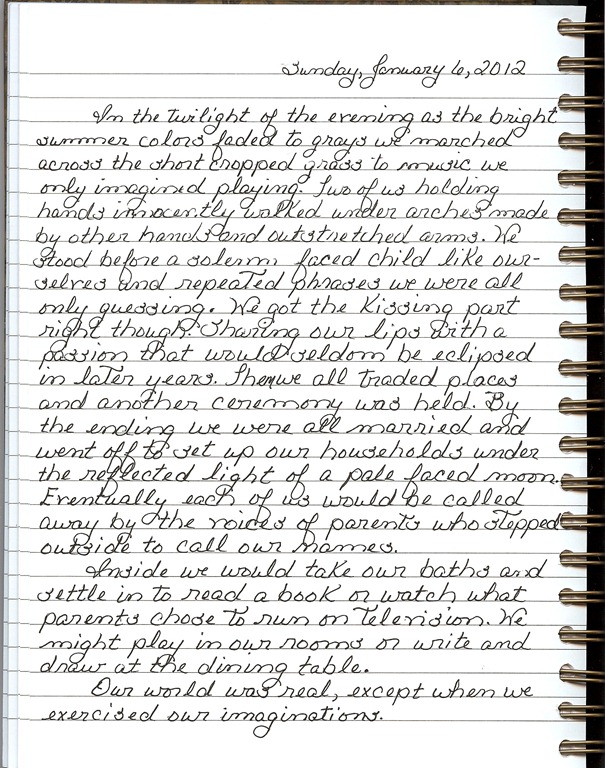 Sunday, January 6, 2012
In the twilight of the evening as the bright
summer colors faded to grays we marched
across the short chopped grass to music we
only imagined playing. Two of us holding
hands innocently walked under arches made
by other hands and outstretched arms. We
stood before a solemn faced child like our-
selves and repeated phrases we were all
only guessing. We got the kissing part
right though. Sharing our lips with a
passion that would seldom be eclipsed
in later years. Then we all traded places
and another ceremony was held. By
the ending we were all married and
went off to set up our households under
the reflected light of a pale faced moon.
Eventually each of us would be called
away by the voices of parents who stepped
outside to call our names.
Inside we would take our baths and
settle in to read a book or watch what
parents chose to run on television. We
might play in our rooms or write and
draw at the dining table.
Our world was real, except when we
exercised our imaginations.